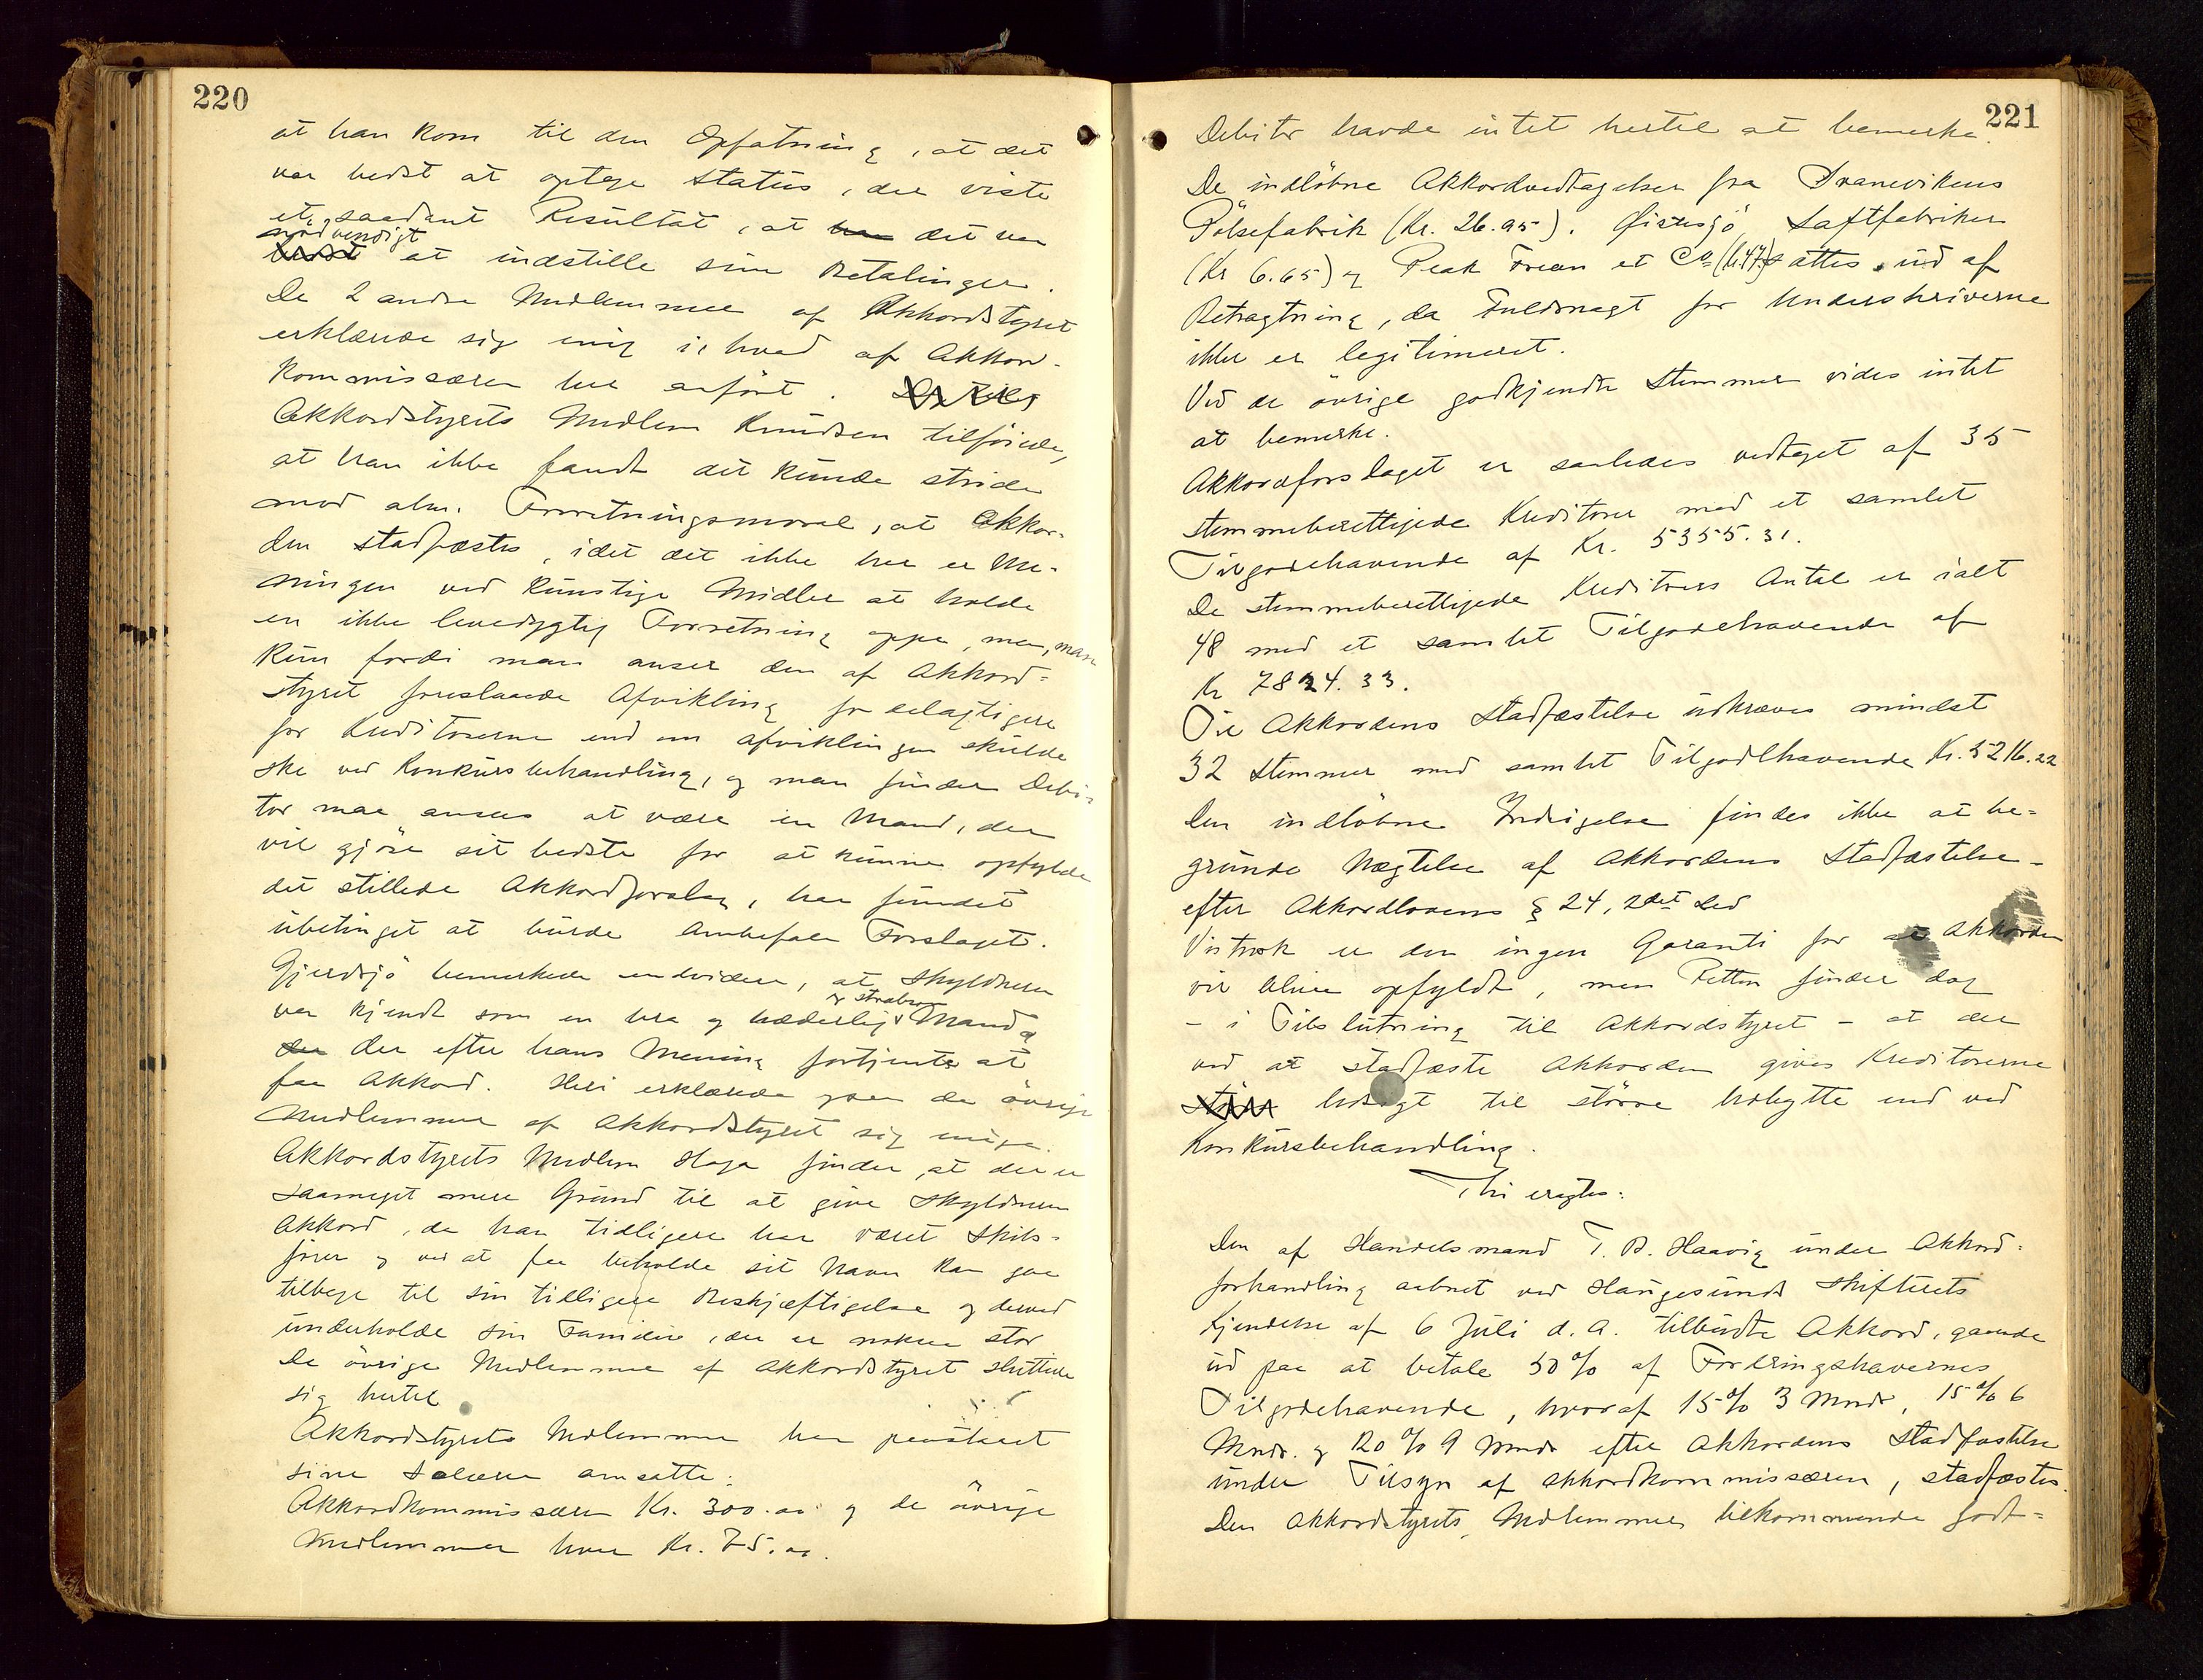 220
at han kom til den Opfatning, at det
var bedst at optage Status, der viste
et saadant Resultat, at han det var
nødvendigt
bedst at indstille sine Betalinger.
De 2 andre Medlemmer af Akkordstyret
erklærede sig enig i hvad af Akkord-
kommissæren her anført.
Akkordstyrets Medlem Knudsen tilføiede,
at han ikke fandt det kunde stride
mod alm. Forretningsmoral, at Akkor-
den stadfæstes, idet det ikke her er Me-
ningen ved kunstige Midler at holde
en ikke levedygtig Forretning oppe, men, man
kun fordi man anser den af Akkord-
styret foreslaaede Afvikling fordelagtigere
for Kreditorerne end om afviklingen skulde
ske ved Konkursbehandling, og man finder Debi-
tor maa ansees at være en Mand, der
vil gjöre sit bedste for at kunne opfylde
det stillede Akkordforslag, har fundet
übetinget at burde anbefale Forslaget.
Gjerdsjö bemerkede endvidere, at Skyldneren
og strævsom
var kjendt som en bra og hæderlig Mand og
der der efter hans Mening fortjente at
faa Akkord. Heri erklærede ogsaa de övrige
Medlemmer af Akkordstyret sig enige.
Akkordstyrets Medlem Haga finder, at der er
saameget mere Grund til at give Skyldneren
Akkord, da han tidligere har været Skibs-
fører og ved at faa beholde sit Navn kan gaa
tilbage til sin tidligere Beskjæftigelse og derved
underholde sin Familie, der er noksaa stor
De övrige Medlemmer af Akkordstyret sluttede
sig hertil
Akkordstyrets Medlemmer har paastaaet
sine Salærer ansatte:
Akkordkommissæren Kr. 300.00 og de övrige
Medlemmer hver Kr. 75.00.
221
Debitor havde intet hertil at bemerke.
De indlöbne Akkordvedtagelser fra Svanevikens
Pölsefabrik (Kr. 26.95). Saftfabriken
(Kr 6.65) og Peak Frean et Co (6.47) sættes ud af
Betragtning, da Fuldmagt for Underskriverne
ikke er legitimeret.
Ved de övrige godkjendte Stemmer vides intet
at bemerke.
Akkordforslaget er saaledes vedtaget af 35
stemmeberettigede Kreditorer med et samlet
Tilgodehavende af Kr. 5355.31.
De stemmeberettigede Kreditorers Antal er ialt
48 med et samlet Tilgodehavende af
Kr 7824.33.
Til Akkordens Stadfæstelse udkræves mindst
32 Stemmer med samlet Tilgodehavende Kr. 5216.22
Den indlöbne Indsigelse findes ikke at be-
grunde Nægtelse af Akkordens Stadfæstelse -
efter Akkordlovens § 24, 2det Led
Vistnok er der ingen Garanti for at Akkorden
vil blive opfyldt, men Retten finder dog
- i Tilslutning til Akkordstyret - at der
ved at stadfæste Akkorden gives Kreditorerne
Udsigt til större Udbytte end ved
Konkursbehandling.
Thi eragtes:
Den af Handelsmand T. B. Haavig under Akkord-
forhandling aabnet ved Haugesunds Skifterets
Kjendelse af 6 Juli d. A. tilbudte Akkord, gaaende
ud paa at betale 50% af Fordringshavernes
Tilgodehavende, hvoraf 15% 3 Mndr, 15% 6
Mndr. og 20% 9 Mndr efter Akkordens Stadfæstelse
under Tilsyn af Akkordkommissæren, stadfæstes.
Den Akkordstyrets Medlemmer tilkommende godt-